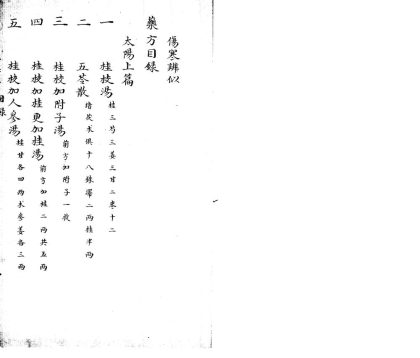 傷寒辨似
藥方目錄
太陽上篇
一 桂枝湯 桂三芍三姜三甘二枣十二
二 五苓散 猪茯术俱十八銖澤一兩桂半兩
三 桂枝加附子湯 前方加附子一枚
四 桂枝加桂更加桂湯 前方加桂二兩共五兩
五 桂枝加人參湯 桂甘各四兩术參姜各三兩
目錄